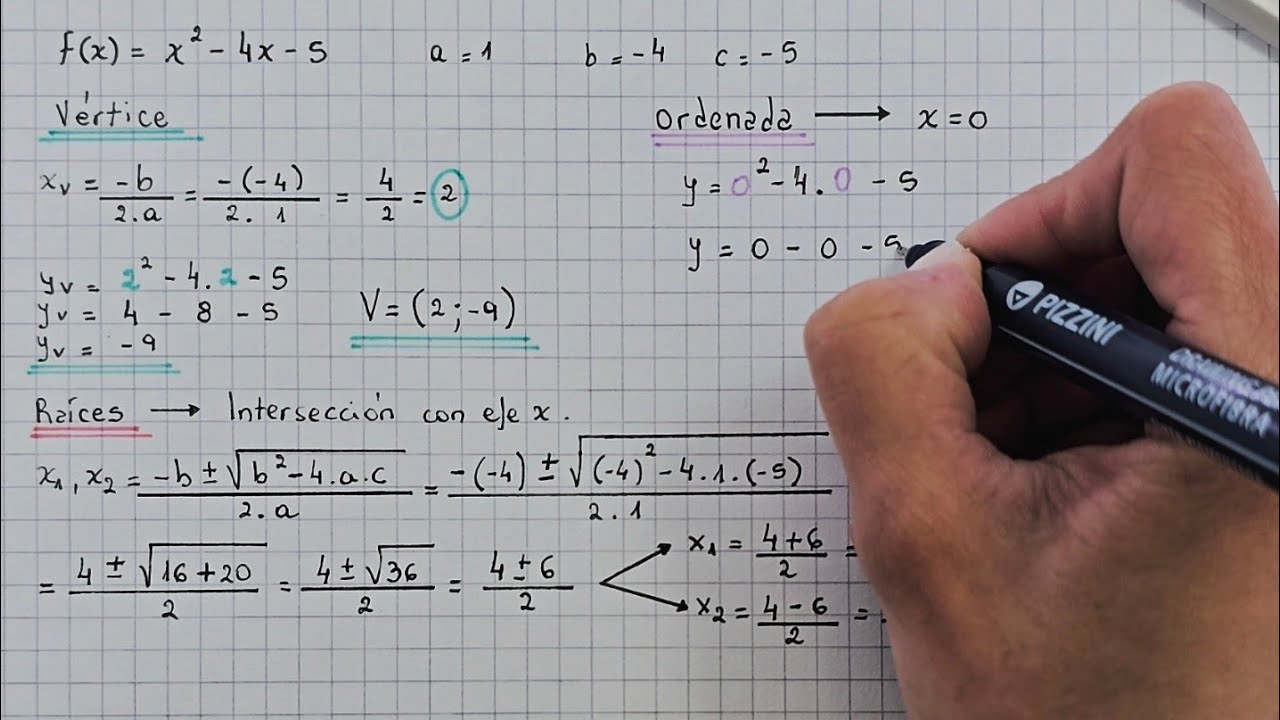 f(x) = x² - 4x - 5 a = 1 b = -4 c = -5
Vértice
xᵥ = -b / 2.a = -(-4) / 2. 1 = 4 / 2 = 2
yᵥ = 2² - 4. 2 - 5
yᵥ = 4 - 8 - 5
yᵥ = -9
V = (2 ; -9)
Ordenada → x = 0
y = 0² - 4. 0 - 5
y = 0 - 0 - 5
Raíces → Intersección con eje x.
x₁, x₂ = -b ± √(b² - 4.a.c) / 2.a = -(-4) ± √((-4)² - 4.1.(-5)) / 2.1
= 4 ± √(16 + 20) / 2 = 4 ± √36 / 2 = 4 ± 6 / 2
x₁ = 4 + 6 / 2 =
x₂ = 4 - 6 / 2 =
PIZZINI
MICROFIBRA